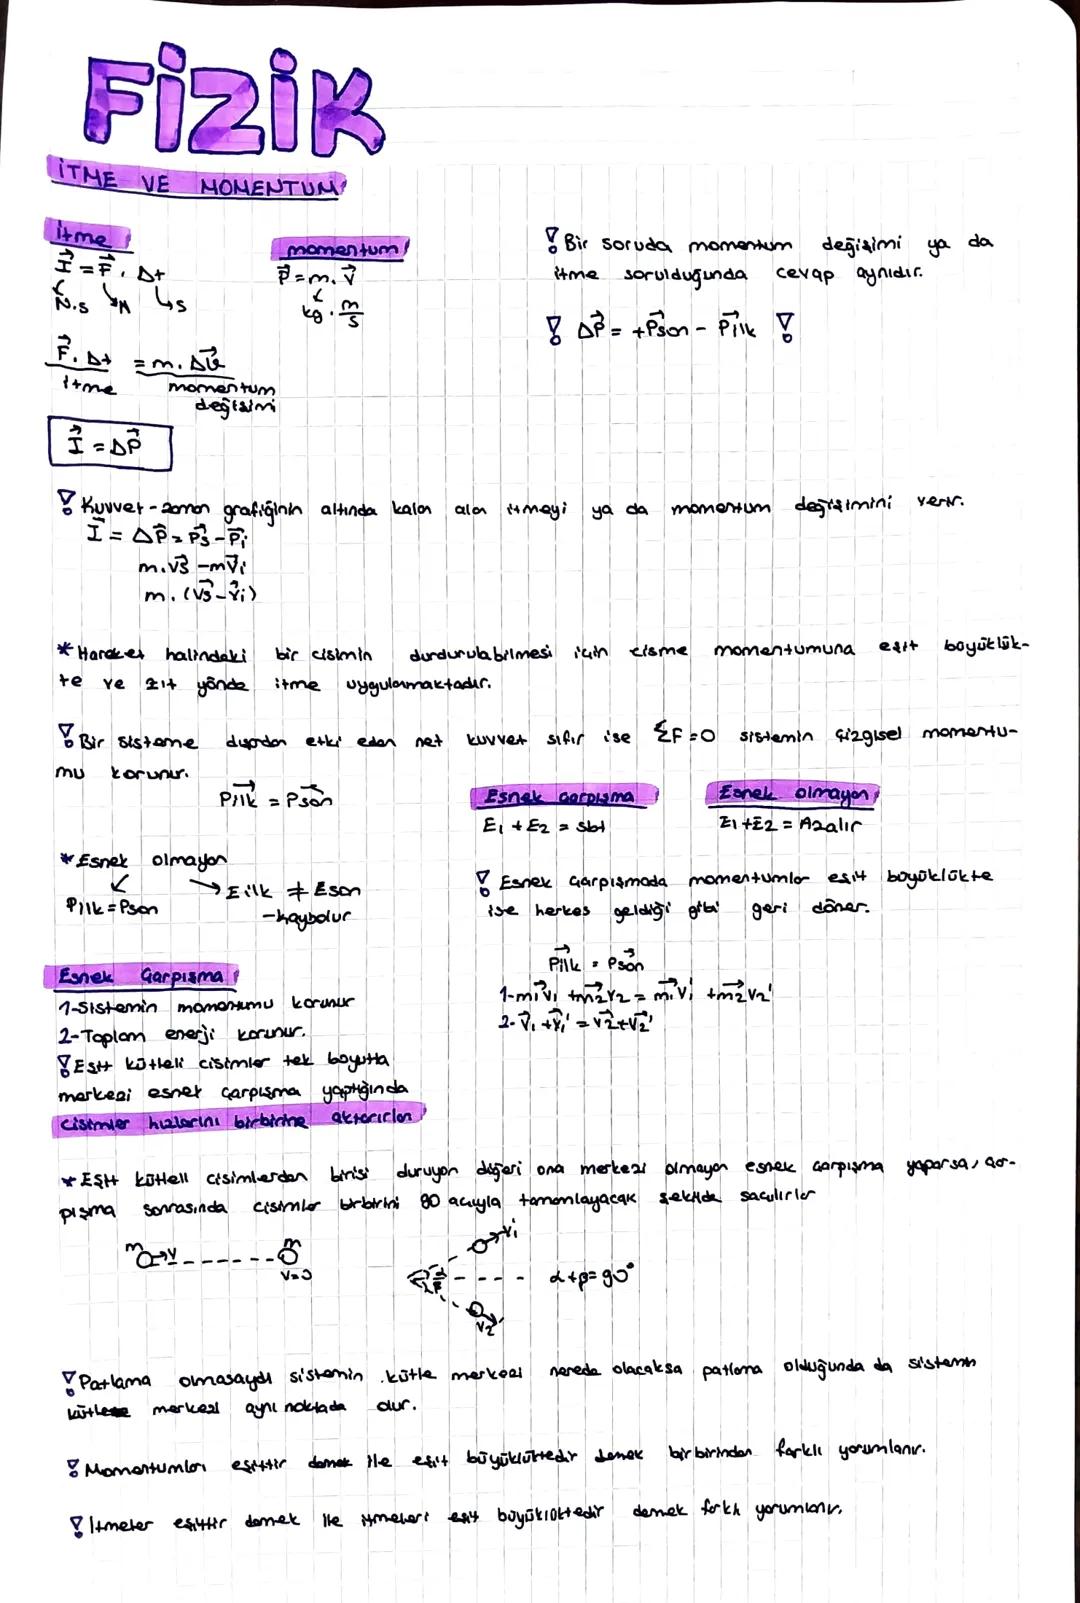 FİZİK
İTME VE MOMENTUM
itme
I = F . Δt
N.s N s
F. Δt = m. Δv
itme momentum
değişimi
I = ΔP
momentum
P = m. V
kg . m/s
! Bir soruda momentum değişimi ya da
itme sorulduğunda cevap aynıdır.
! ΔP = +Pson - Pilk !
! Kuvvet - zaman grafiğinin altında kalan alan itmeyi ya da momentum değişimini verir.
I = ΔP = Ps - Pi
m.vs - mvi
m. (vs - vi)
* Hareket halindeki bir cismin durdurulabilmesi için cisme momentumuna eşit büyüklük-
te ve zıt yönde itme uygulanmaktadır.
! Bir sisteme dışardan etki eden net kuvvet sıfır ise ΣF=0 sistemin çizgisel momentu-
mu korunur.
Pilk = Pson
* Esnek olmayan
Pilk = Pson
Eilk ≠ Eson
-kaybolur
Esnek çarpışma
E1 + E2 = sbt
Esnek olmayan
E1 + E2 = Azalır
! Esnek çarpışmada momentumlar eşit büyüklükte
ise herkes geldiği gibi geri döner.
Pilk = Pson
1-m1v1 + m2v2 = m1v1' + m2v2'
2- v1 + v1' = v2 + v2'
Esnek Çarpışma
1-Sistemin momentumu korunur
2-Toplam enerji korunur.
! Eşit kütleli cisimler tek boyutta
merkezi esnek çarpışma yaptığında
cisimler hızlarını birbirine aktarırlar
* Eşit kütleli cisimlerden birisi duruyon diğeri ona merkezi olmayan esnek çarpışma yaparsa, çar-
pışma sonrasında cisimler birbirini 90 açıyla tamamlayacak şekilde saçılırlar
m v m
v=0
v1
α
β
v2
α+β=90°
! Patlama olmasaydı sistemin kütle merkezi nerede olacaksa patlama olduğunda da sistemin
kütle merkezi aynı noktada olur.
! Momentumları eşittir demek ile eşit büyüklüktedir demek birbirinden farklı yorumlanır.
! İtmeler eşittir demek ile itmeleri eşit büyüklüktedir demek farklı yorumlanır.